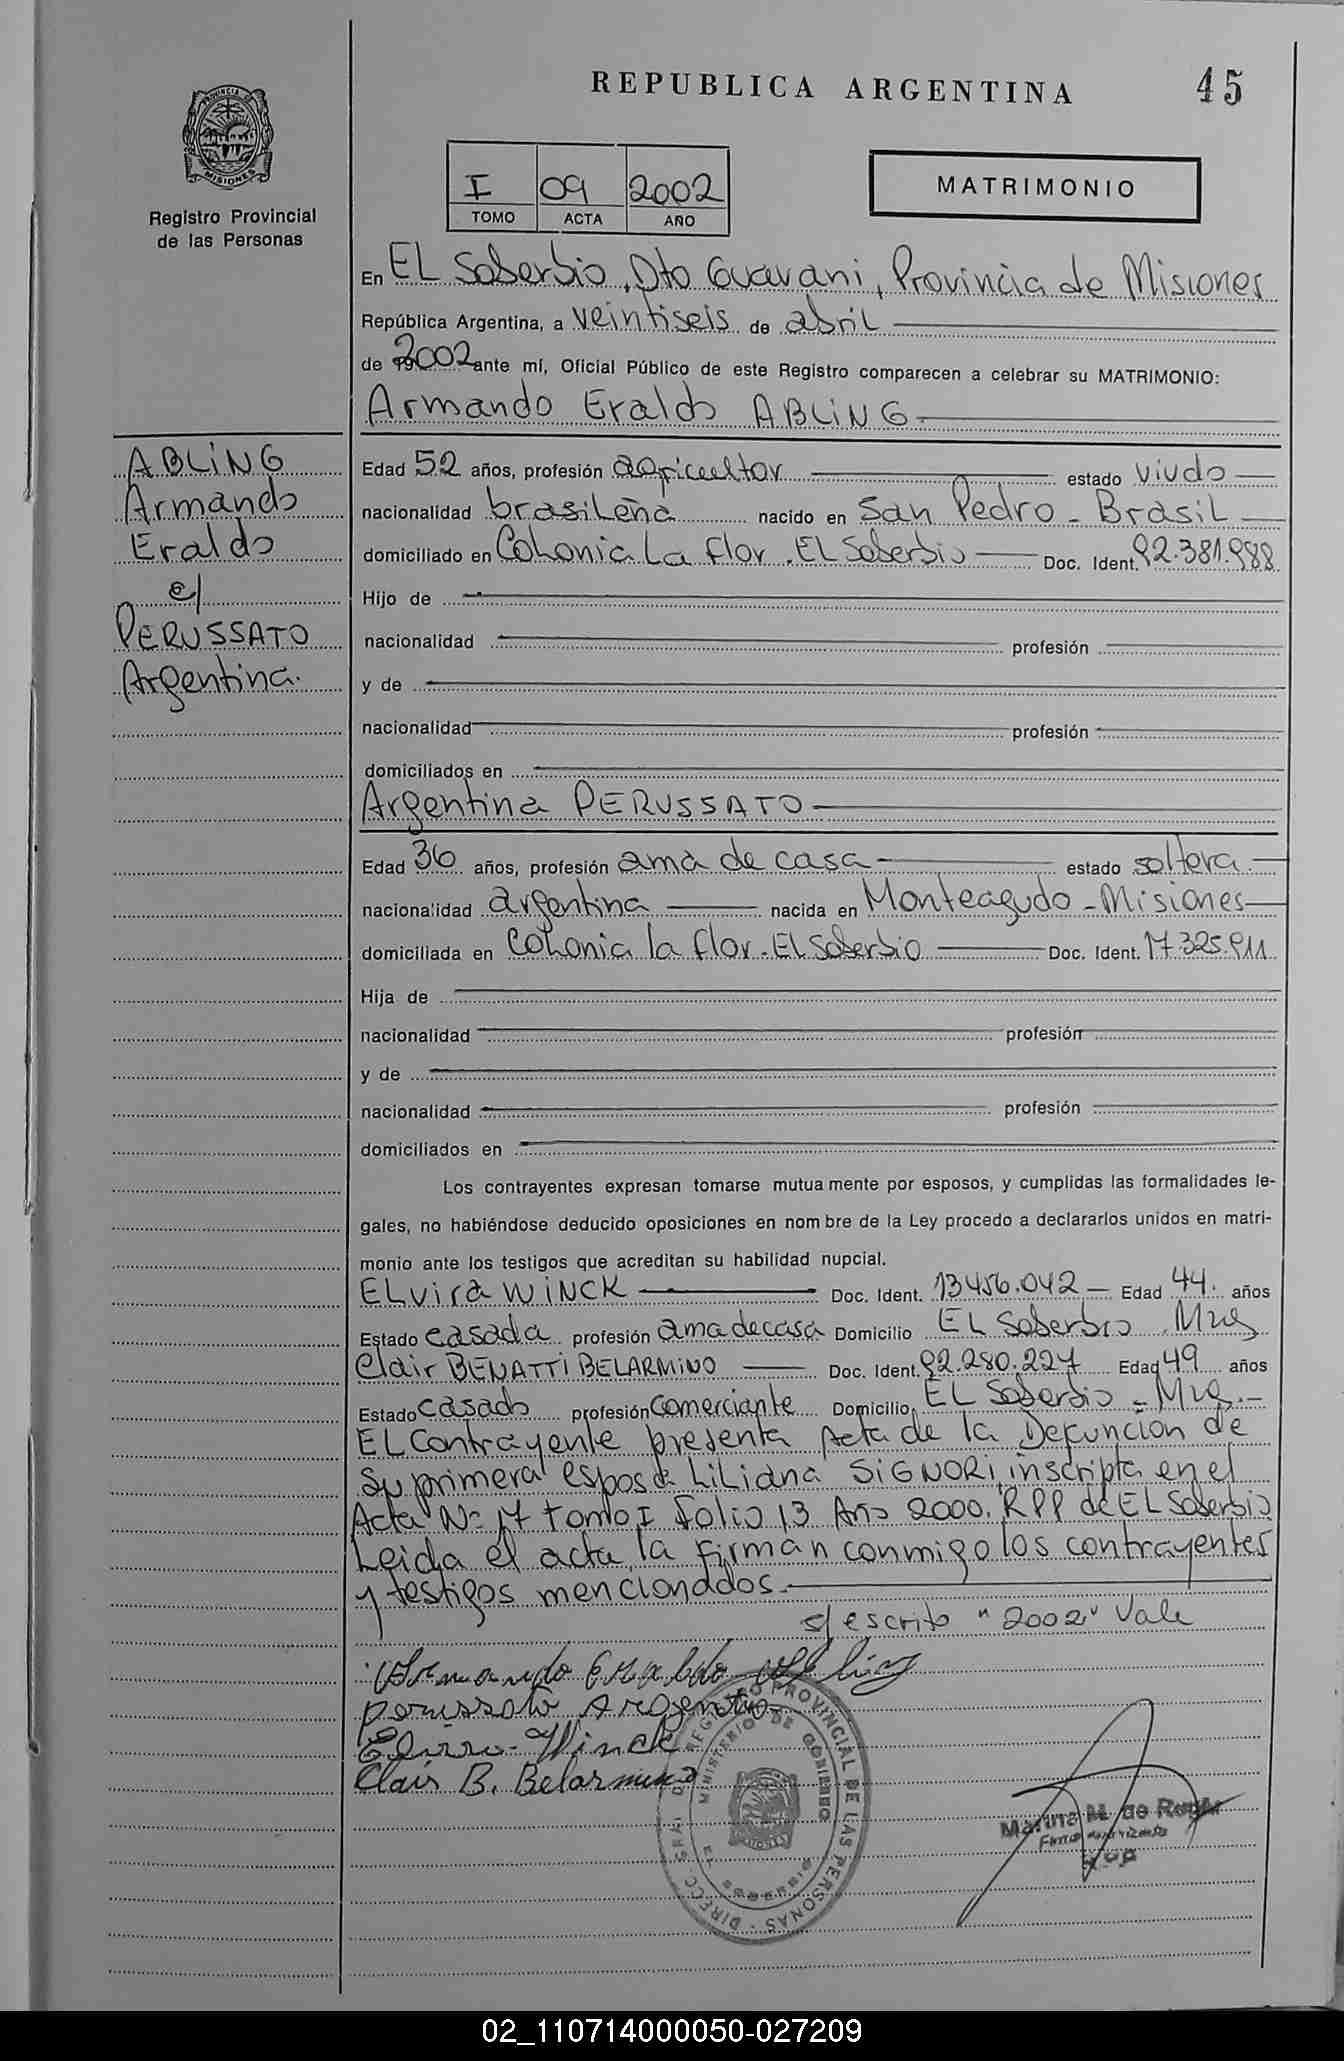 REPUBLICA ARGENTINA
45
PROVINCIA DE MISIONES
Registro Provincial
de las Personas
I 09 2002
TOMO ACTA AÑO
MATRIMONIO
En EL Soberbio, Dto Guaraní, Provincia de Misiones
República Argentina, a veintiseis de abril
de 2002 ante mí, Oficial Público de este Registro comparecen a celebrar su MATRIMONIO:
Armando Eraldo ABLING
ABLING
Armando
Eraldo
c/
PERUSSATO
Argentina.
Edad 52 años, profesión agricultor estado viudo
nacionalidad brasileña nacido en San Pedro - Brasil
domiciliado en Colonia La Flor. EL Soberbio Doc. Ident. 92.381.988
Hijo de
nacionalidad profesión
y de
nacionalidad profesión
domiciliados en
Argentina PERUSSATO
Edad 36 años, profesión ama de casa estado soltera.
nacionalidad argentina nacida en Monteagudo - Misiones
domiciliada en Colonia la flor. EL Soberbio Doc. Ident. 17.325.911
Hija de
nacionalidad profesión
y de
nacionalidad profesión
domiciliados en
Los contrayentes expresan tomarse mutuamente por esposos, y cumplidas las formalidades le-
gales, no habiéndose deducido oposiciones en nombre de la Ley procedo a declararlos unidos en matri-
monio ante los testigos que acreditan su habilidad nupcial.
ELvira WINCK Doc. Ident. 13456.042 Edad 44. años
Estado casada profesión ama de casa Domicilio EL Soberbio. Mnes
Clair BENATTI BELARMINO Doc. Ident. 92.280.227 Edad 49 años
Estado casado profesión comerciante Domicilio EL Soberbio - Mns.-
EL Contrayente presenta Acta de la Defunción de
su primera esposa Liliana SIGNORI, inscripta en el
Acta Nº 17 tomo I Folio 13 Año 2000. RPP de EL Soberbio
Leida el acta, la firman conmigo los contrayentes
y testigos mencionados.
s/ escrito "2002" Vale
Armando Eraldo Abling
Perussato Argentina
Elvira Winck
Clair B. Belarmino
DIRECC. GRAL. DEL REGISTRO PROVINCIAL DE LAS PERSONAS
MINISTERIO DE GOBIERNO
EL SOBERBIO
Marina M. de
02_110714000050-027209